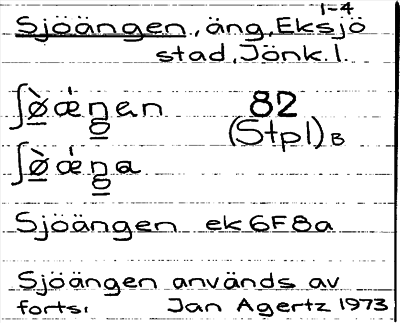 1-4
Sjöängen, äng, Eksjö
stad, Jönk. l.
ʃø̠̀ǽn̠̥an 82
(Stpl) B
ʃø̠̀ǽn̠̥a
Sjöängen ek 6F8a
Sjöängen används av
forts. Jan Agertz 1973